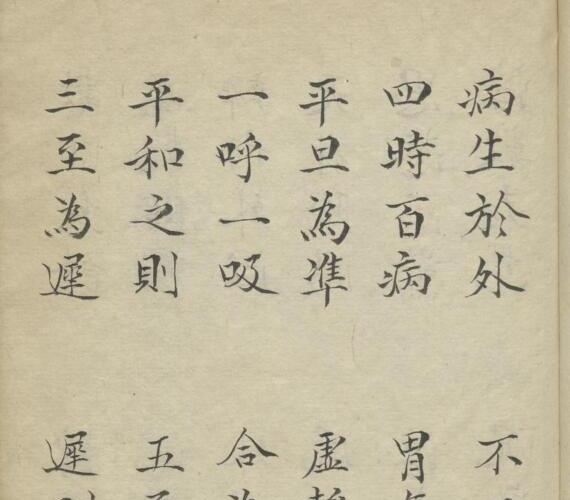 病生於外 不
四時百病 胃
平旦為凖 虛
一呼一吸 合
平和之則 五
三至為遲 遲